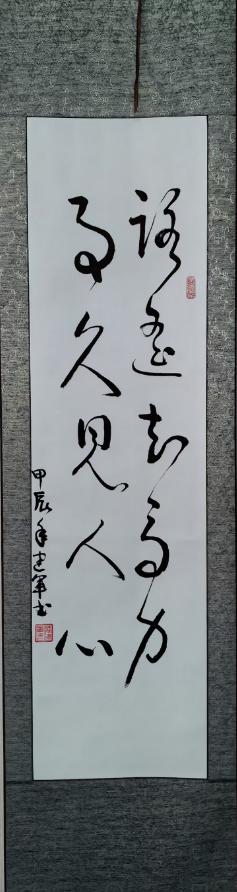 路遥知马力
事久见人心
甲辰年建军书